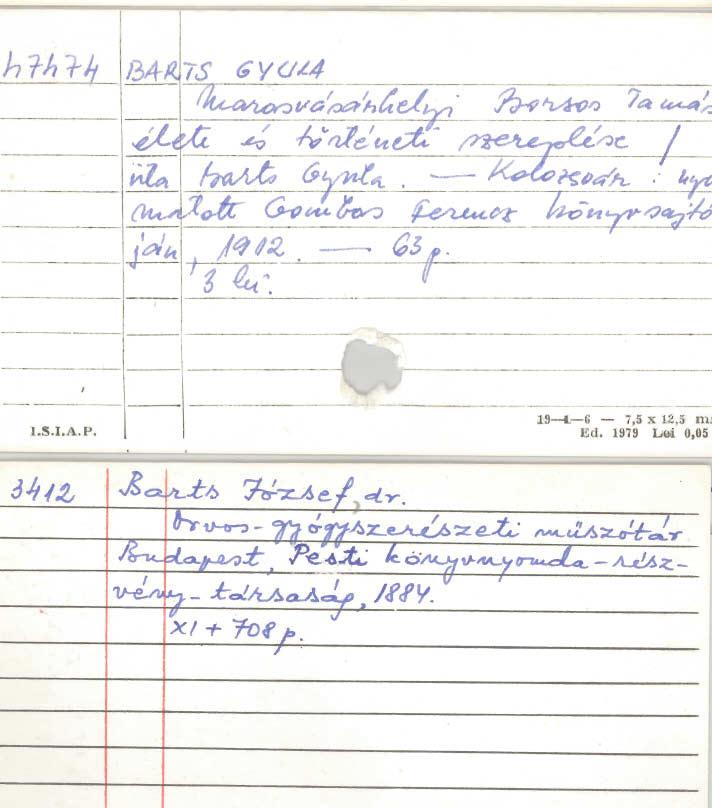 47474 BARTS GYULA
Marosvásárhelyi Borsos Tamás
élete és történeti szereplése /
írta Barts Gyula. — Kolozsvár : nyo
matott Gombos Ferencz könyvsajtó
ján, 1912. — 63 p.
3 lei.
I.S.I.A.P.
19—4—6 — 7,5 x 12,5 m
Ed. 1979 Lei 0,05
3412 Barts József, dr.
Orvos-gyógyszerészeti műszótár
Budapest, Pesti könyvnyomda-rész-
vény-társaság, 1884.
XI + 708 p.